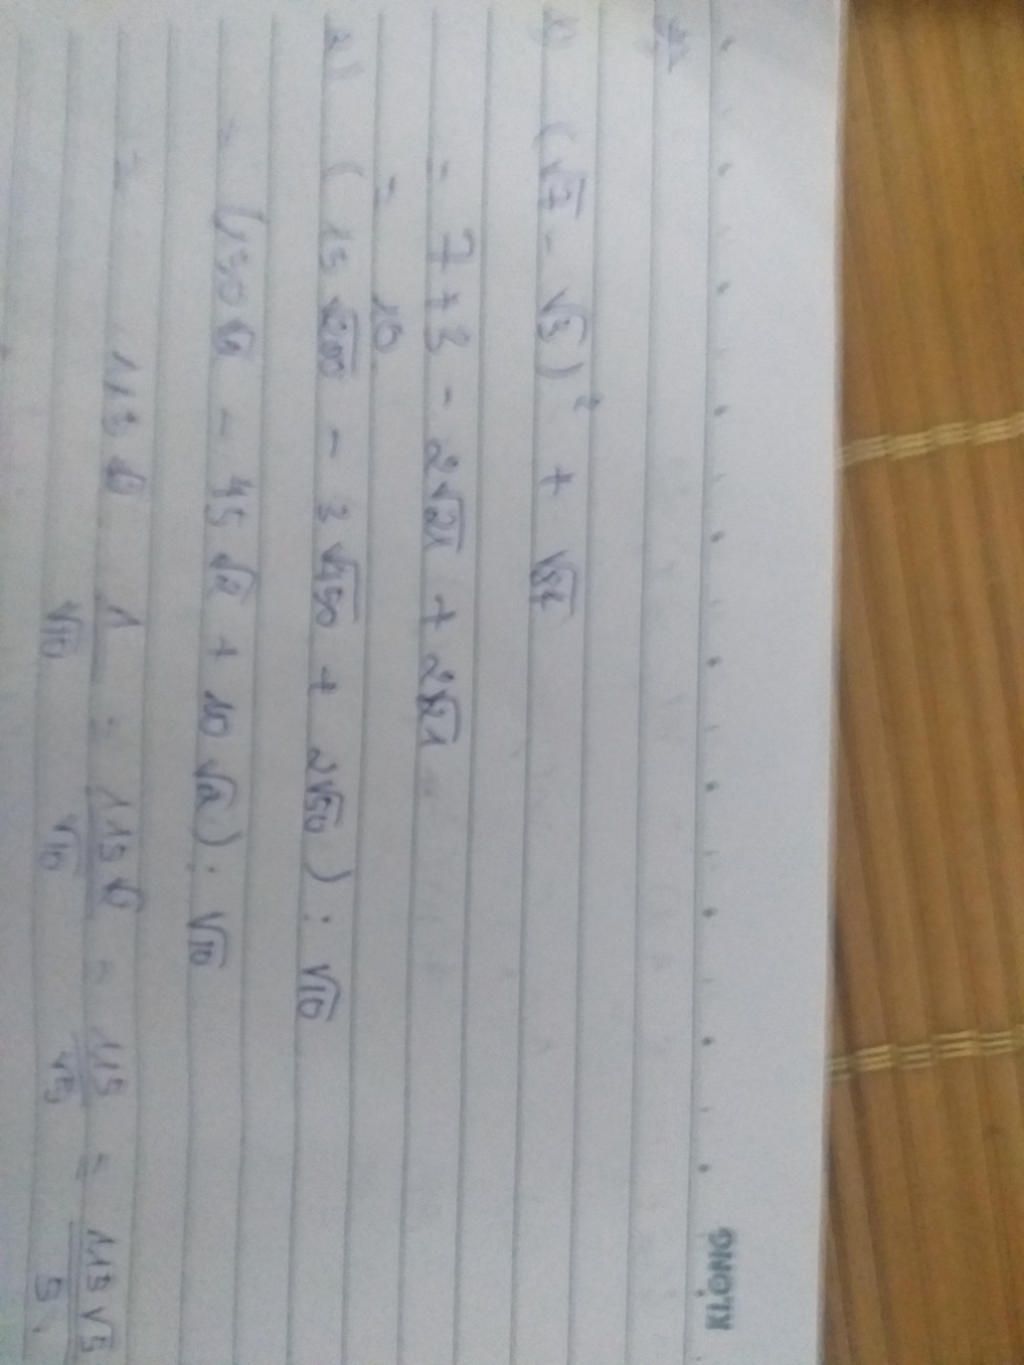 KLONG
1) (√7 - √3)² + √84
= 7 + 3 - 2√21 + 2√21
= 10
2) (15√200 - 3√450 + 2√50) : √10
= (150√2 - 45√2 + 10√2) : √10
= 115√2 1/√10 = 115√2/√10 = 115/√5 = 115√5/5.